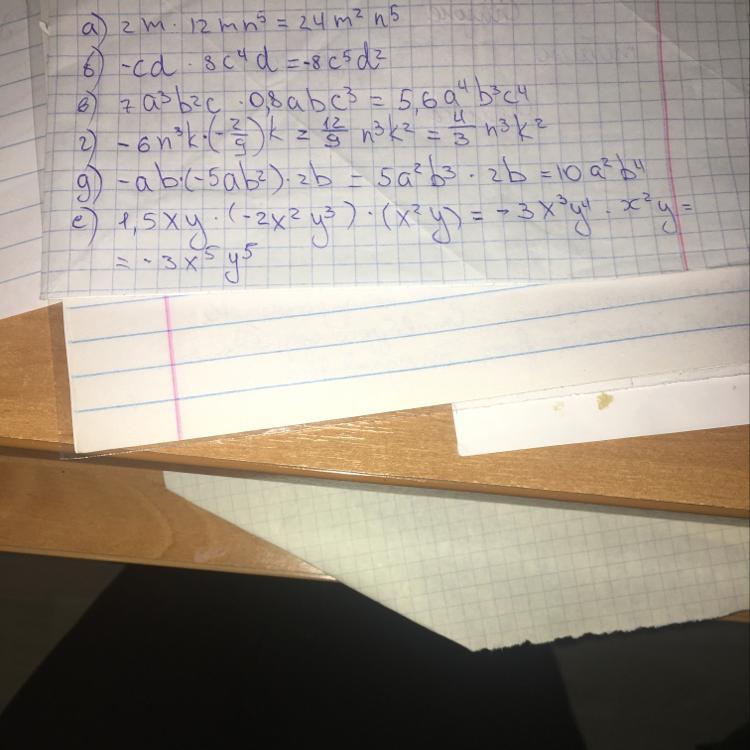 а) 2m · 12mn⁵ = 24m²n⁵
б) -cd · 8c⁴d = -8c⁵d²
в) 7a³b²c · 0,8abc³ = 5,6a⁴b³c⁴
г) -6n³k·(-2/9)k = 12/9 n³k² = 4/3 n³k²
д) -ab·(-5ab²)·2b = 5a²b³ · 2b = 10a²b⁴
е) 1,5xy · (-2x²y³) · (x²y) = -3x³y⁴ · x²y =
= -3x⁵y⁵